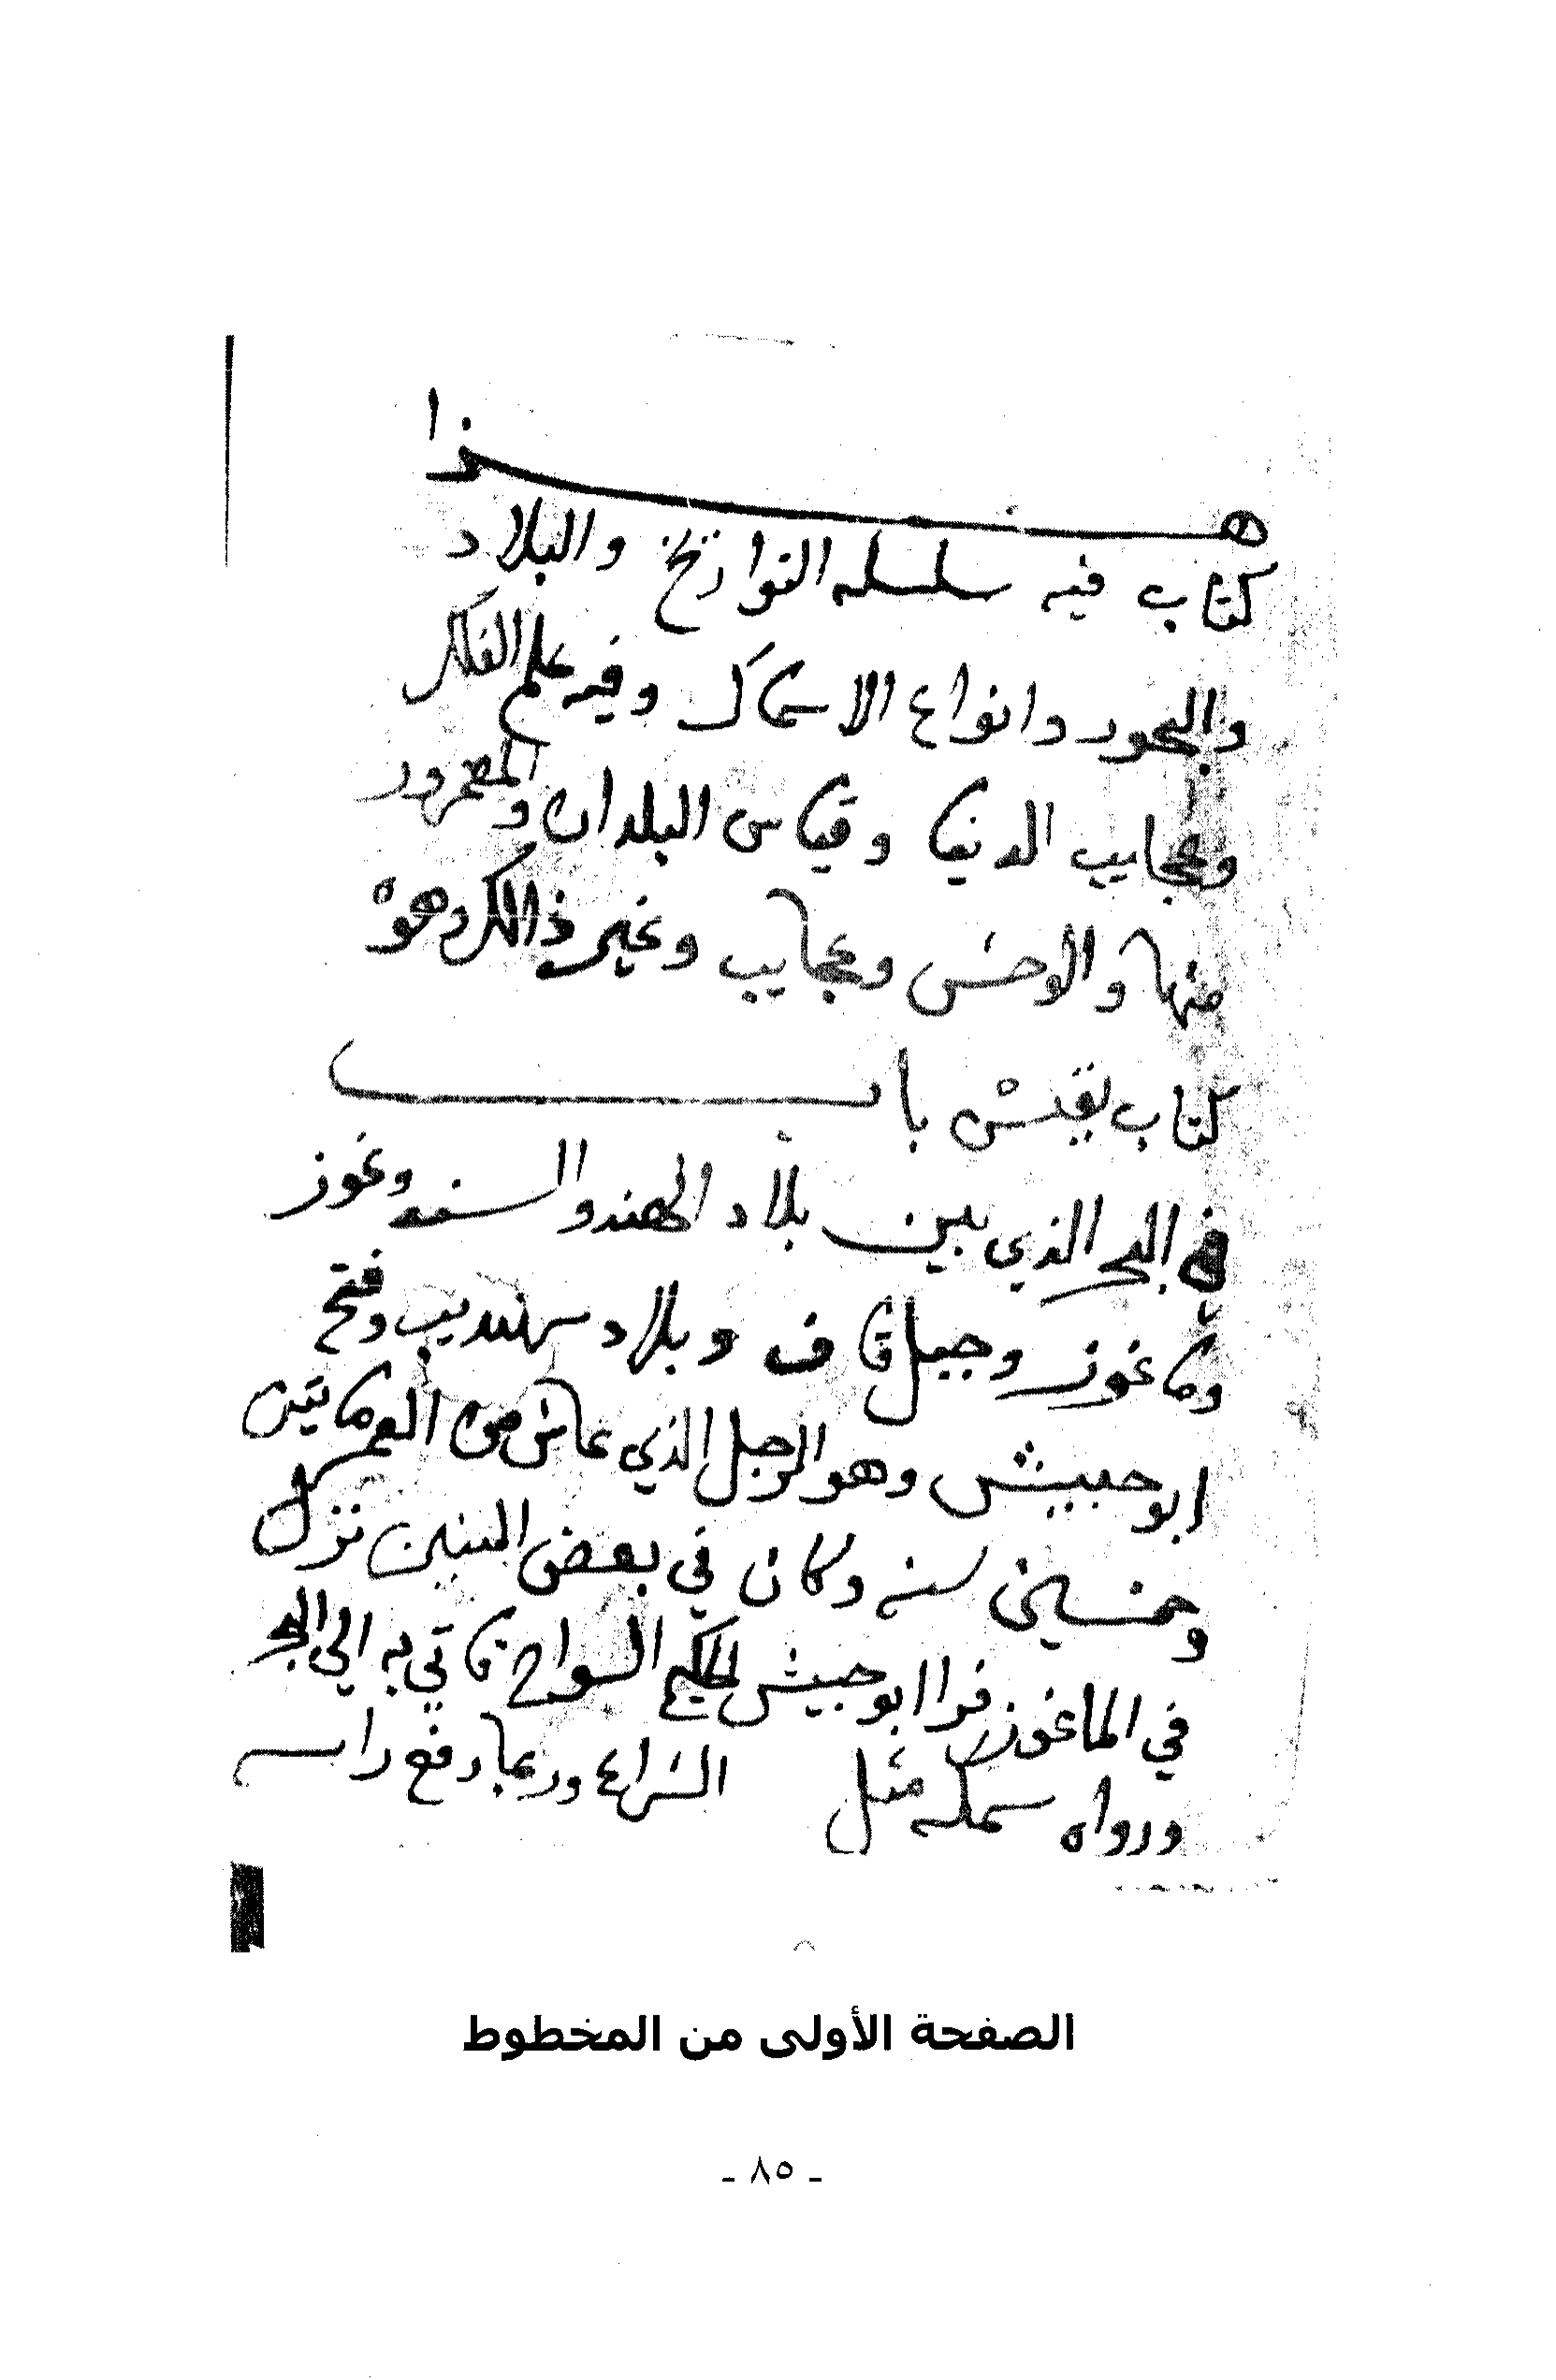 هذا
كتاب فيه سلسله التواريخ والبلاد
والبحور وانواع الاسماك وفيه علم الفلك
وعجايب الدنيا وقياس البلدان والمعمور
منها والوحش وعجايب وغير ذالك وهو
كتاب نفيس باب
في البحر الذي بين بلاد الهند والسند وغوز
وماغوز وجبل قاف وبلاد سرنديب وفتح
ابو حبيش وهو الرجل الذي عاش من العمر مايتين
وخمسين سنه وكان في بعض السنين نزل
في الماغوز فرا ابو حبيش الحكيم السواح تاتي به الي البحر
ورواه سمكه مثل الشراع وربما رفع راسه
الصفحة الأولى من المخطوط
- ٨٥ -